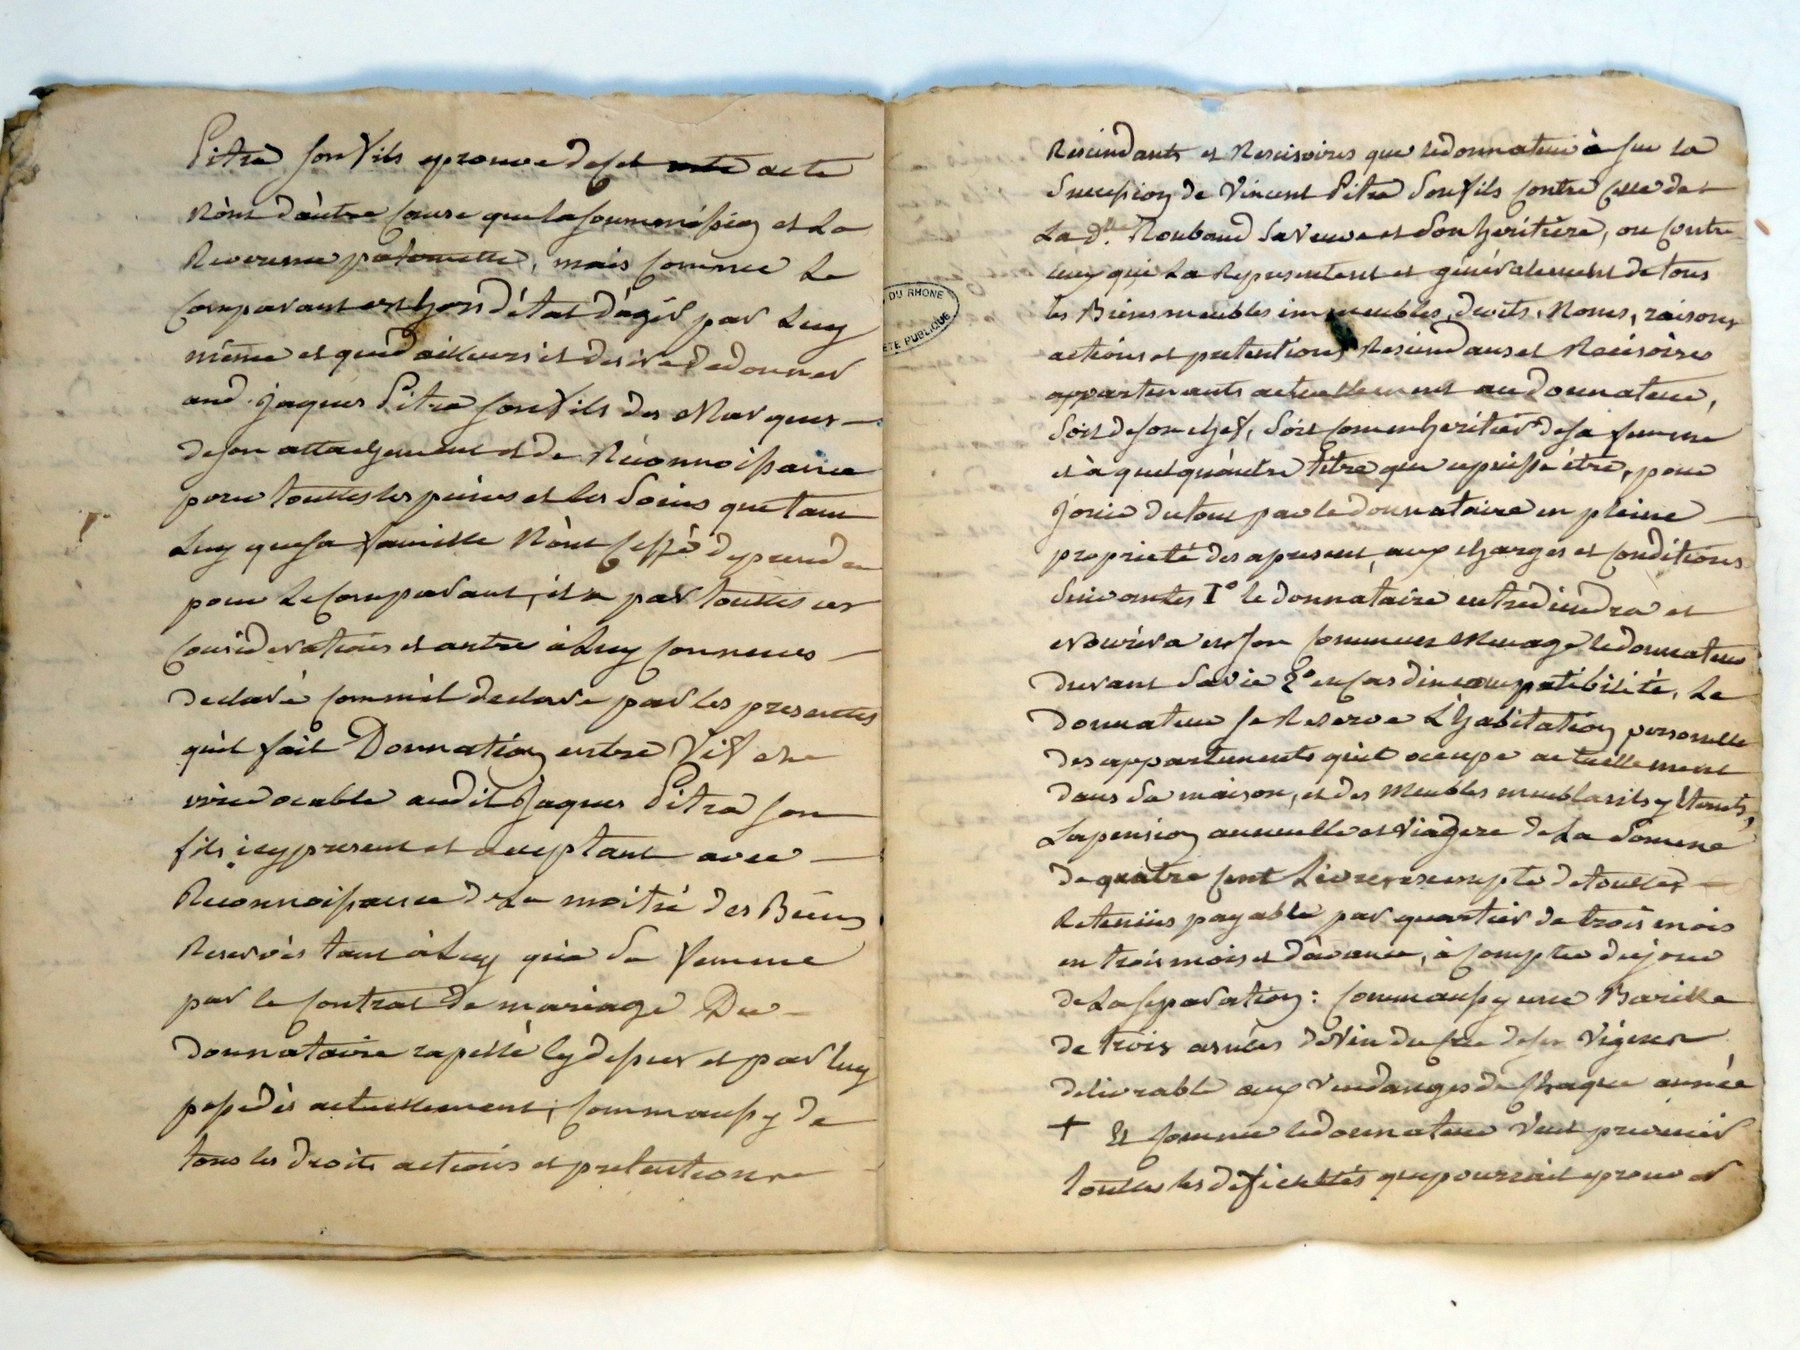 Pitra son fils eprouve de cet acte
n'ont d'autre cause que la soummission et la
Reverence paternelle, mais comme le
comparant est hors d'état d'agir par luy
même et que d'ailleurs il desire de donner
aud. jaques Pitra son fils des marques
de son attachement et de Réconnoissance
pour touttes les peines et les soins que tant
luy que sa famille n'ont cessé de prendre
pour le comparant, il a par touttes ces
considerations et autre à luy connues
declaré comm'il declare par les presentes
qu'il fait Donnation entre vif et
irrevocable audit Jaques Pitra son
fils icy present et acceptant avec
Reconnoissance de la moitié des Biens
Reservés tant à luy qu'a sa femme
par le contrat de mariage Du
donnataire rapellé cy dessus et par luy
possedés actuellement, comm'aussy de
tous les droits actions et pretentions
Rescindants et Rescisoires que le donnateur à sur la
succession de Vincent Pitra son fils contre celle de
la dlle. Roubaud sa veuve et son heritière, ou contre
ceux qui la Representent et généralement de tous
les Biens meubles immeubles, droits, noms, raisons
actions et pretentions Rescindans et Recisoires
appartenants actuellement au donnateur,
soit de son chef, soit comm'heritier de sa femme
et à quelqu'autre titre que ce puisse être, pour
jouir du tout par le donnataire en pleine
proprieté des apresent, aux charges et conditions
suivantes 1o le donnataire entretiendra et
nourira en son commun menage le donnateur
durant sa vie 2o en cas d'incompatibilité, le
donnateur se Reserve l'habitation personnelle
des appartements qu'il occupe actuellement
dans sa maison, et des meubles meublants y étants,
la pension annuelle et viagere de la somme
de quatre cent livres exempte de touttes
Retenües payable par quartier de trois mois
en trois mois et d'avance, à compter du jour
de la separation: comm'aussy une Barille
de trois asnées de vin du cru de ses vignes
delivrable aux vendanges de chaque année
+ Et comme le donnateur veut prevenir
touttes les deficultés que pourroit eprouver
DU RHONE
PUBLIQUE